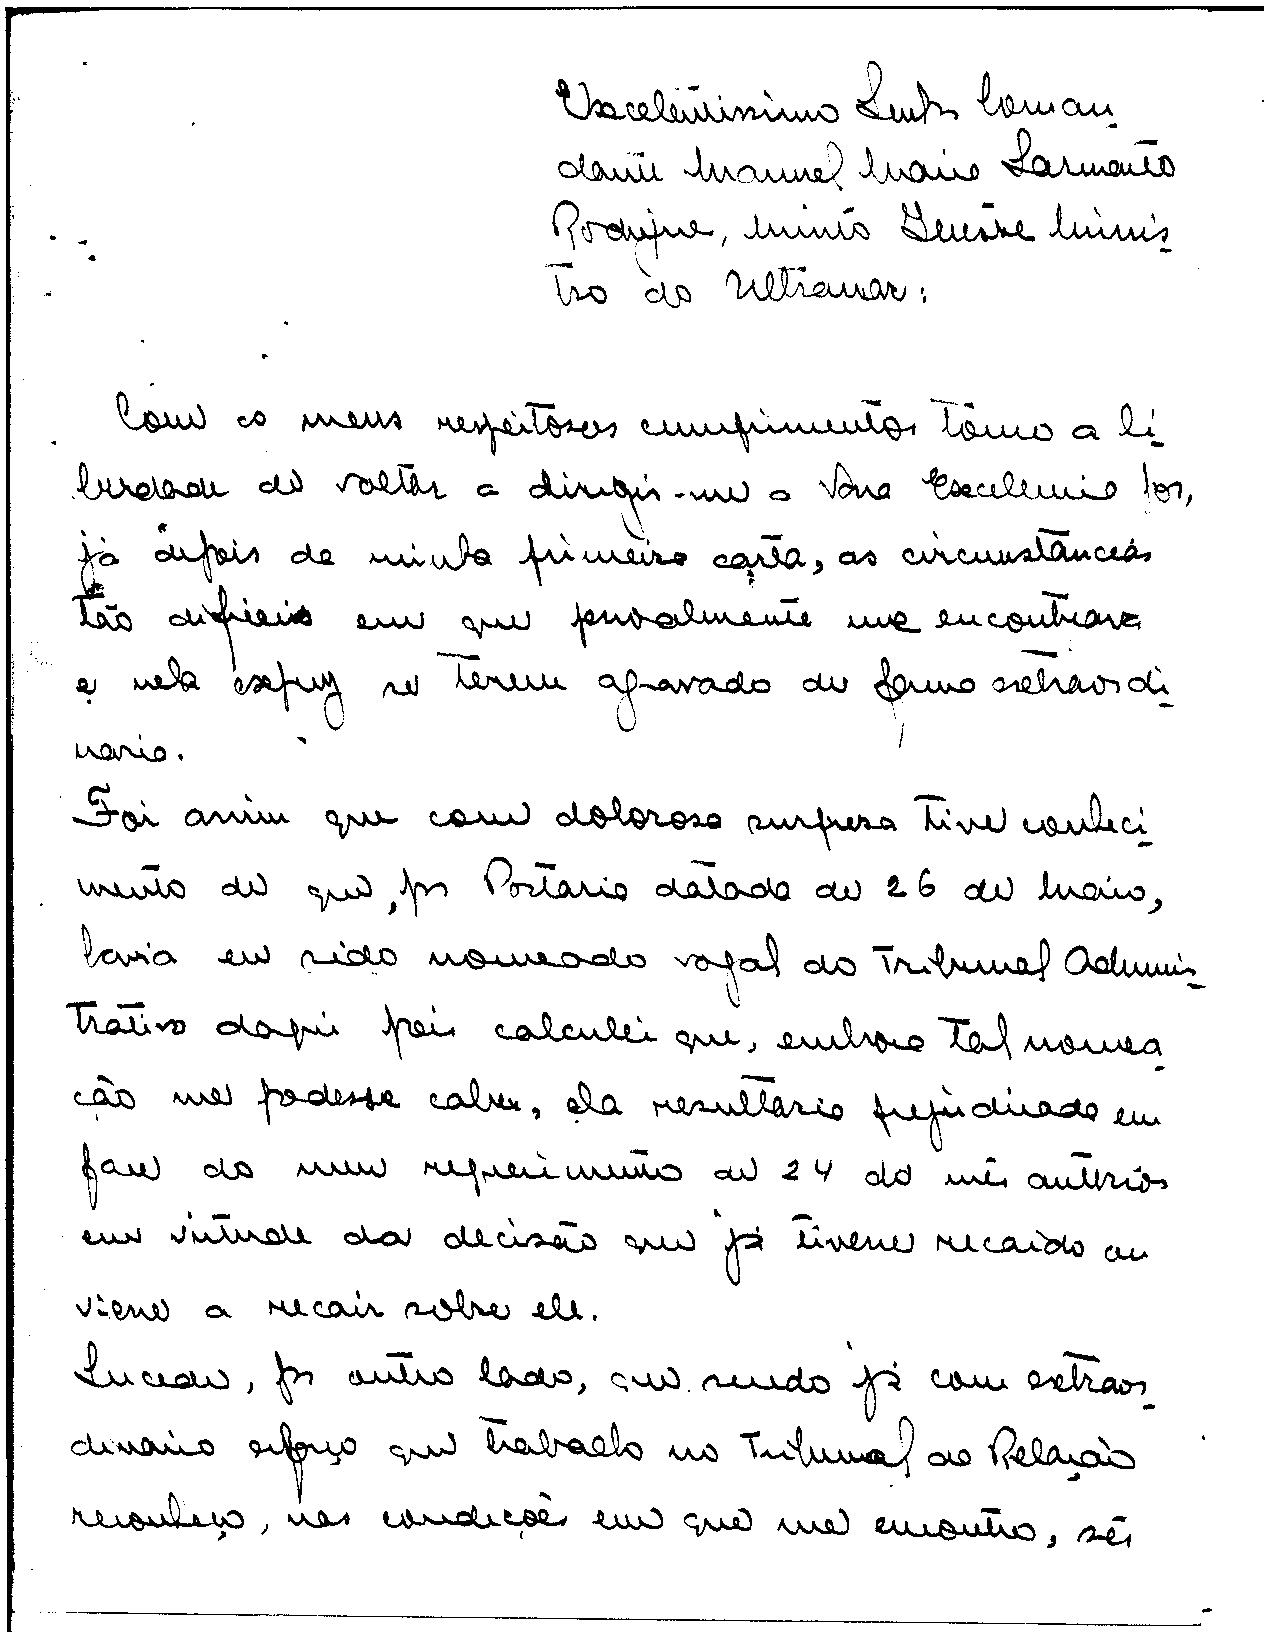 Excelentissimo Senhor Coman-
dante Manuel Maria Sarmento
Rodrigues, Ministro Ministro
tro do Ultramar:
Com os meus respeitosos cumprimentos tômo a li-
berdade de voltar a dirigir-me a Vossa Excelencia por,
já depois da minha primeira carta, as circunstâncias
tão dificeis em que pessoalmente me encontrava
e nela expuz se terem agravado de forma extraordi-
naria.
Foi assim que com dolorosa surpresa tive conheci-
mento de que, por Portaria datada de 26 de Maio,
havia eu sido nomeado vogal do Tribunal Adminis-
trativo daqui pois calculei que, embora tal nomea-
ção me podesse caber, ela resultaria prejudicada em
face do meu requerimento de 24 do mês anterior
em virtude da decisão que já tivesse recaido ou
viesse a recair sobre ele.
Sucede, por outro lado, que sendo já com extraor-
dinario esforço que trabalho no Tribunal da Relação
reconheço, nas condições em que me encontro, sêr